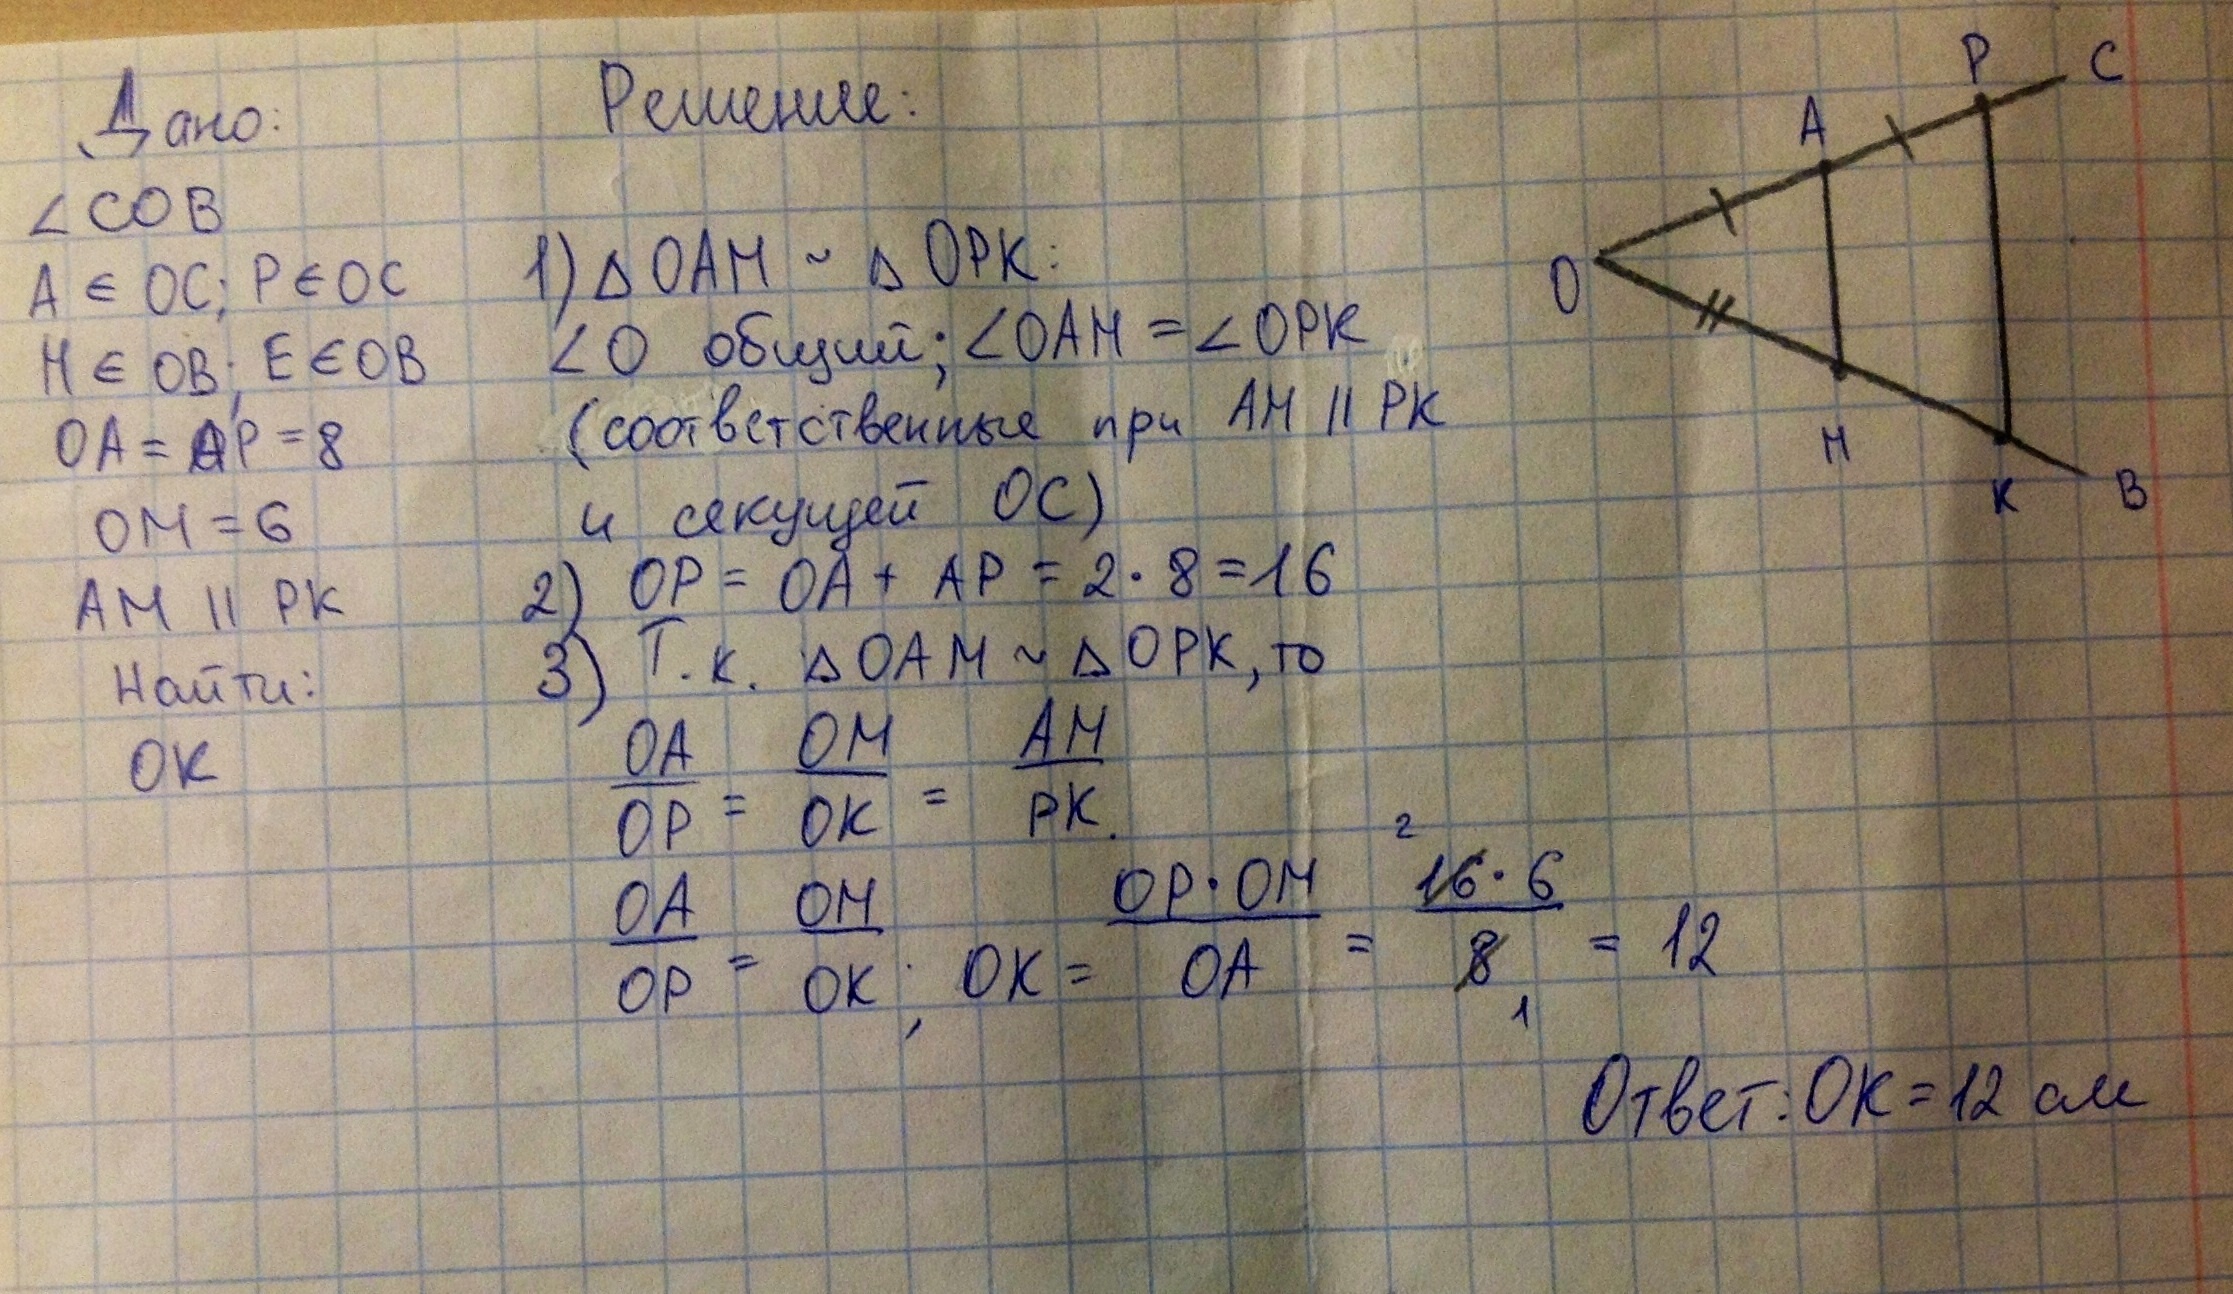 Дано:
∠COB
A ∈ OC; P ∈ OC
M ∈ OB; E ∈ OB
OA = AP = 8
OM = 6
AM || PK
Найти:
OK
Решение:
1) △OAM ~ △OPK:
∠O общий; ∠OAM = ∠OPK
(соответственные при AM || PK
и секущей OC)
2) OP = OA + AP = 2 · 8 = 16
3) Т.к. △OAM ~ △OPK, то
OA/OP = OM/OK = AM/PK.
OA/OP = OM/OK; OK = OP·OM/OA = 16·6/8 = 12
2
1
Ответ: OK = 12 см
P C
A
O
M
K B